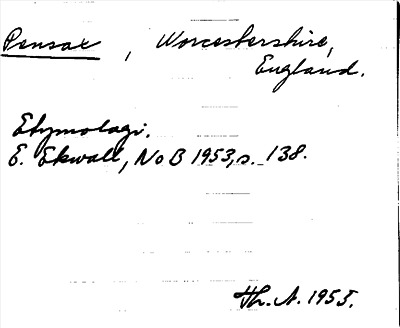 Pensax, Worcestershire,
England.
Etymologi.
E. Ekwall, NoB 1953, s. 138.
Th. A. 1955.